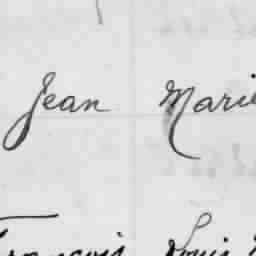 Jean Marie
François Louis